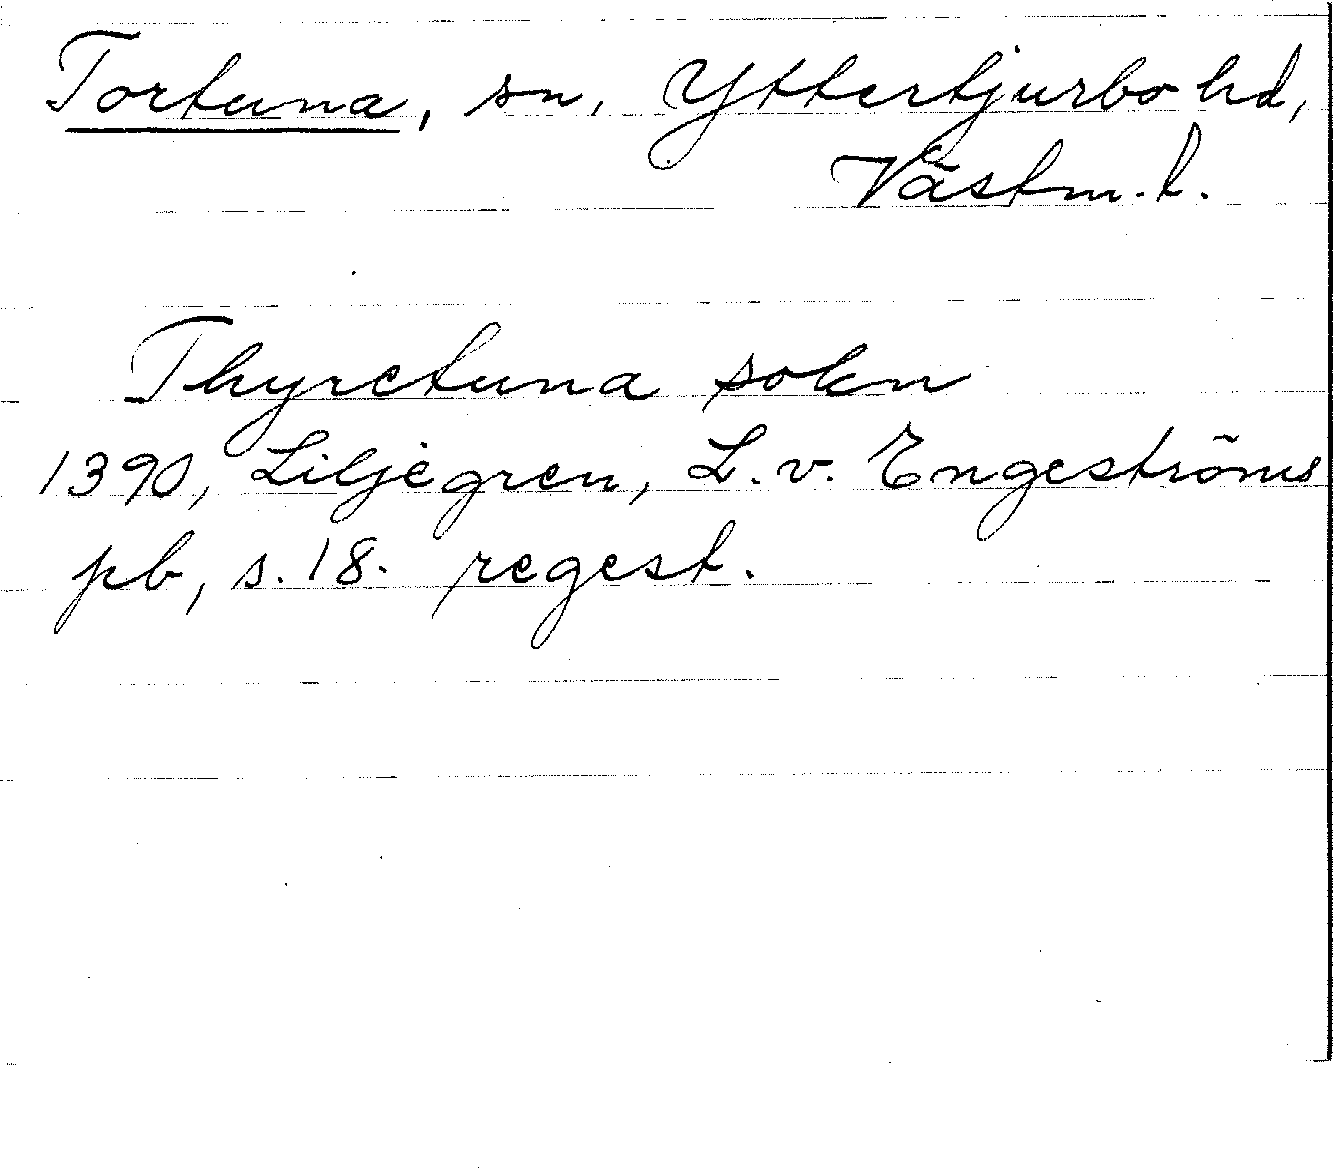 Tortuna, sn, Yttertjurbo hd,
Västm. l.
Thyretuna sokn
1390, Liljegren, L. v. Engeströms
pb, s. 18. regest.